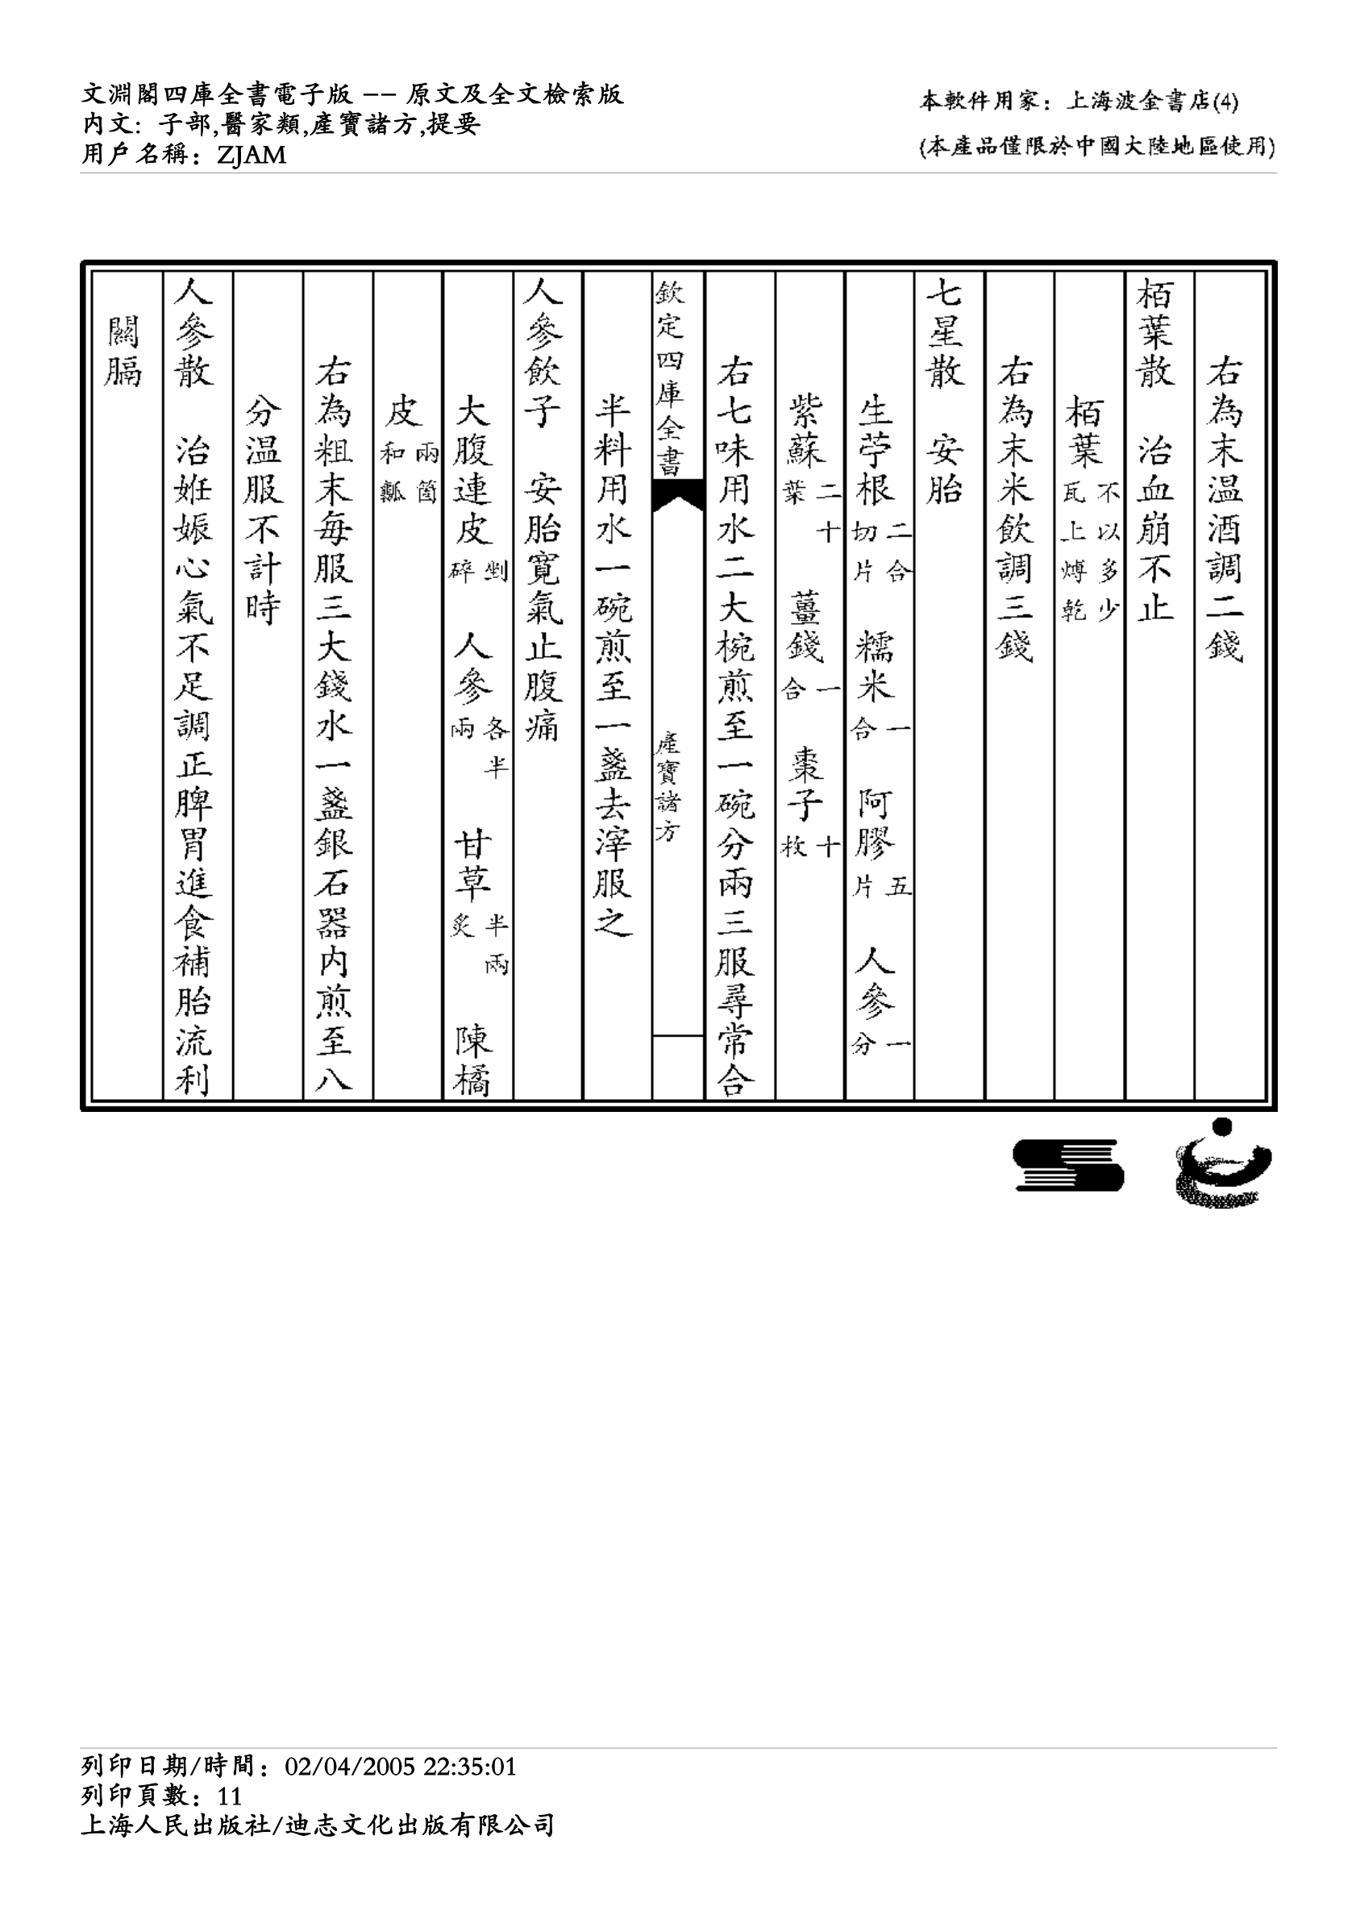 文淵閣四庫全書電子版 -- 原文及全文檢索版
內文: 子部,醫家類,產寶諸方,提要
用戶名稱: ZJAM
本軟件用家: 上海波金書店(4)
(本產品僅限於中國大陸地區使用)
右為末温酒調二錢
栢葉散 治血崩不止
栢葉不以多少瓦上煿乾
右為末米飲調三錢
七星散 安胎
生苧根二合切片 糯米一合 阿膠五片 人參一分
紫蘇二十葉 薑錢一合 棗子十枚
右七味用水二大椀煎至一碗分兩三服尋常合
欽定四庫全書
產寶諸方
半料用水一碗煎至一盞去滓服之
人參飲子 安胎寛氣止腹痛
大腹連皮剉碎 人參各半兩 甘草半兩炙 陳橘
皮兩箇和瓤
右為粗末每服三大錢水一盞銀石器内煎至八
分温服不計時
人參散 治姙娠心氣不足調正脾胃進食補胎流利
關膈
列印日期/時間: 02/04/2005 22:35:01
列印頁數: 11
上海人民出版社/迪志文化出版有限公司